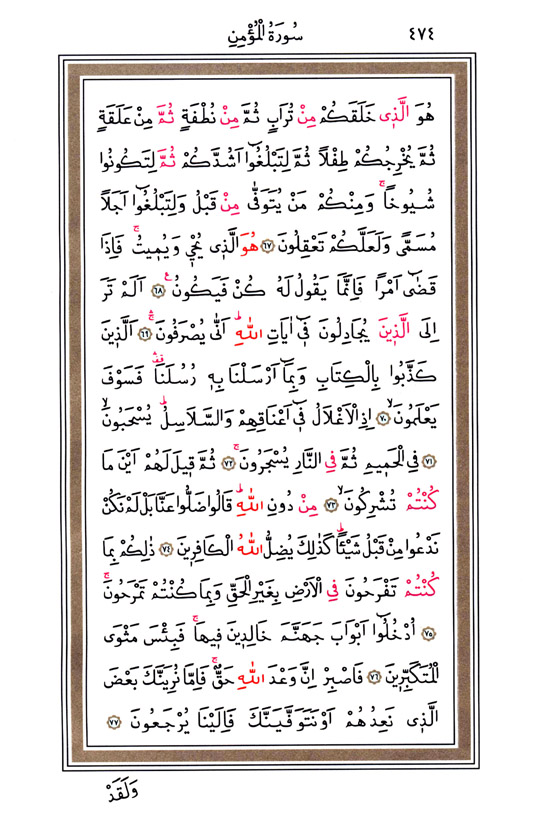 ٤٧٤
سُورَةُ الْمُؤْمِنِ
هُوَ الَّذ۪ي خَلَقَكُمْ مِنْ تُرَابٍ ثُمَّ مِنْ نُطْفَةٍ ثُمَّ مِنْ عَلَقَةٍ
ثُمَّ يُخْرِجُكُمْ طِفْلًا ثُمَّ لِتَبْلُغُٓوا اَشُدَّكُمْ ثُمَّ لِتَكُونُوا
شُيُوخًاۚ وَمِنْكُمْ مَنْ يُتَوَفّٰى مِنْ قَبْلُ وَلِتَبْلُغُٓوا اَجَلًا
مُسَمًّى وَلَعَلَّكُمْ تَعْقِلُونَ ﴿٦٧﴾ هُوَ الَّذ۪ي يُحْي۪ وَيُم۪يتُۚ فَاِذَا
قَضٰٓى اَمْرًا فَاِنَّمَا يَقُولُ لَهُ كُنْ فَيَكُونُ۟ ﴿٦٨﴾ اَلَمْ تَرَ
اِلَى الَّذ۪ينَ يُجَادِلُونَ ف۪ٓي اٰيَاتِ اللّٰهِۜ اَنّٰى يُصْرَفُونَۚۛ ﴿٦٩﴾ اَلَّذ۪ينَ
كَذَّبُوا بِالْكِتَابِ وَبِمَٓا اَرْسَلْنَا بِه۪ رُسُلَنَا۠ فَسَوْفَ
يَعْلَمُونَۙ ﴿٧٠﴾ اِذِ الْاَغْلَالُ ف۪ٓي اَعْنَاقِهِمْ وَالسَّلَاسِلُۜ يُسْحَبُونَۙ
﴿٧١﴾ فِي الْحَم۪يمِ ثُمَّ فِي النَّارِ يُسْجَرُونَۚ ﴿٧٢﴾ ثُمَّ ق۪يلَ لَهُمْ اَيْنَ مَا
كُنْتُمْ تُشْرِكُونَۙ ﴿٧٣﴾ مِنْ دُونِ اللّٰهِۜ قَالُوا ضَلُّوا عَنَّا بَلْ لَمْ نَكُنْ
نَدْعُوا مِنْ قَبْلُ شَيْـًٔاۜ كَذٰلِكَ يُضِلُّ اللّٰهُ الْكَافِر۪ينَ ﴿٧٤﴾ ذٰلِكُمْ بِمَا
كُنْتُمْ تَفْرَحُونَ فِي الْاَرْضِ بِغَيْرِ الْحَقِّ وَبِمَا كُنْتُمْ تَمْرَحُونَۚ
﴿٧٥﴾ اُدْخُلُٓوا اَبْوَابَ جَهَنَّمَ خَالِد۪ينَ ف۪يهَاۚ فَبِئْسَ مَثْوَى
الْمُتَكَبِّر۪ينَ ﴿٧٦﴾ فَاصْبِرْ اِنَّ وَعْدَ اللّٰهِ حَقٌّۚ فَاِمَّا نُرِيَنَّكَ بَعْضَ
الَّذ۪ي نَعِدُهُمْ اَوْ نَتَوَفَّيَنَّكَ فَاِلَيْنَا يُرْجَعُونَ ﴿٧٧﴾
وَلَقَدْ